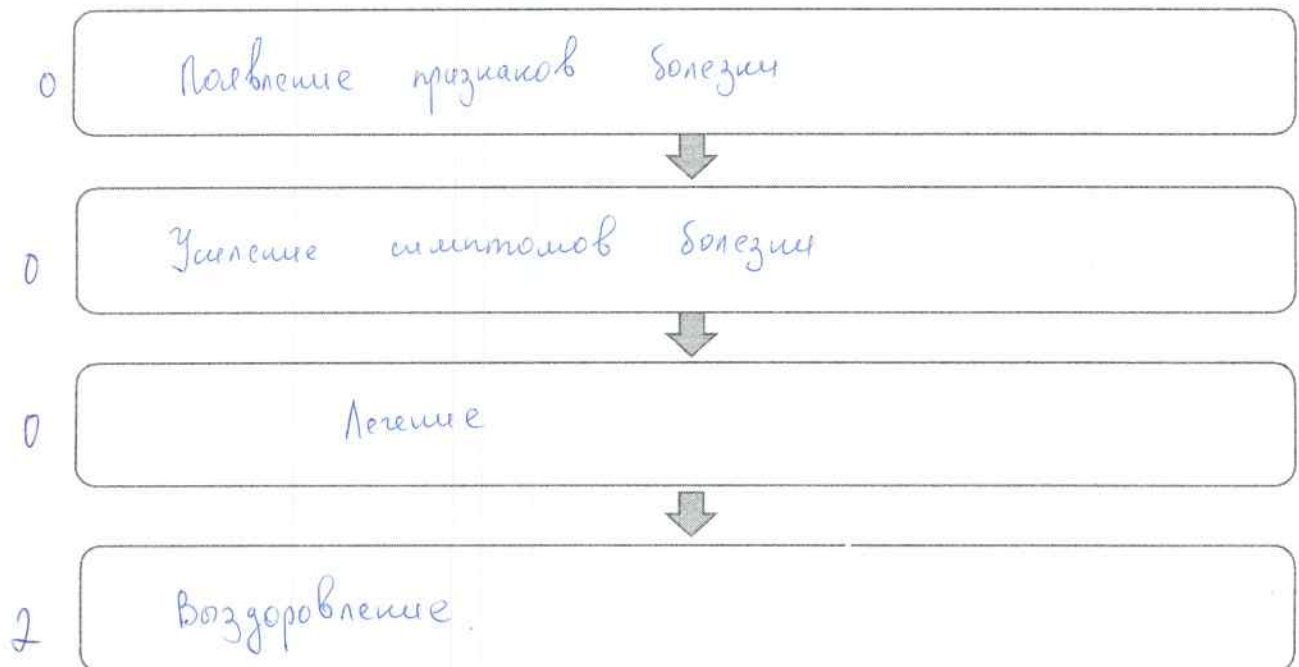 0 Появление признаков болезни
0 Усиление симптомов болезни
0 Лечение
2 Выздоровление.